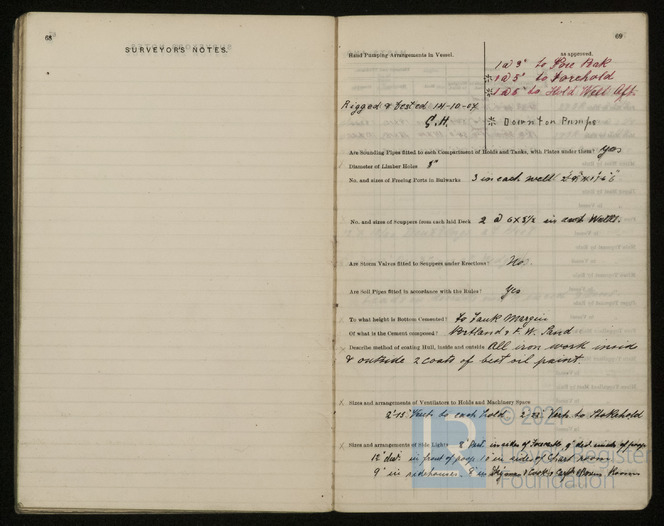 68
SURVEYORS NOTES.
69
Hand Pumping Arrangements in Vessel.
as approved.
1 @ 3" to Fore Peak
1 @ 5" to Forehold
1 @ 5" to Hold Well Aft.
Rigged & tested 14-10-07
G.H.
Downton Pumps
Are Sounding Pipes fitted to each Compartment of Holds and Tanks, with Plates under them? Yes
Diameter of Limber Holes
No. and sizes of Freeing Ports in Bulwarks 3 in each well
No. and sizes of Scuppers from each laid Deck 2 @ 6 x 3½ in each Well.
Are Storm Valves fitted to Scuppers under Erections? No.
Are Soil Pipes fitted in accordance with the Rules? Yes
To what height is Bottom Cemented? to Tank Margin
Of what is the Cement composed? Portland & F. W. Sand
Describe method of coating Hull, inside and outside All iron work inside
& outside 2 coats of best oil paint
Sizes and arrangements of Ventilators to Holds and Machinery Space
2-15" Vents to each hold 2-22" Vents to Stokehold
Sizes and arrangements of Side Lights 8" in sides of 9" dist. inside of poop
12" dist. in front of poop 10" in sides of Chart room
9" in sidehouses. 8" in & Cooks Room
© 2021
LR
Lloyd's Register
Foundation